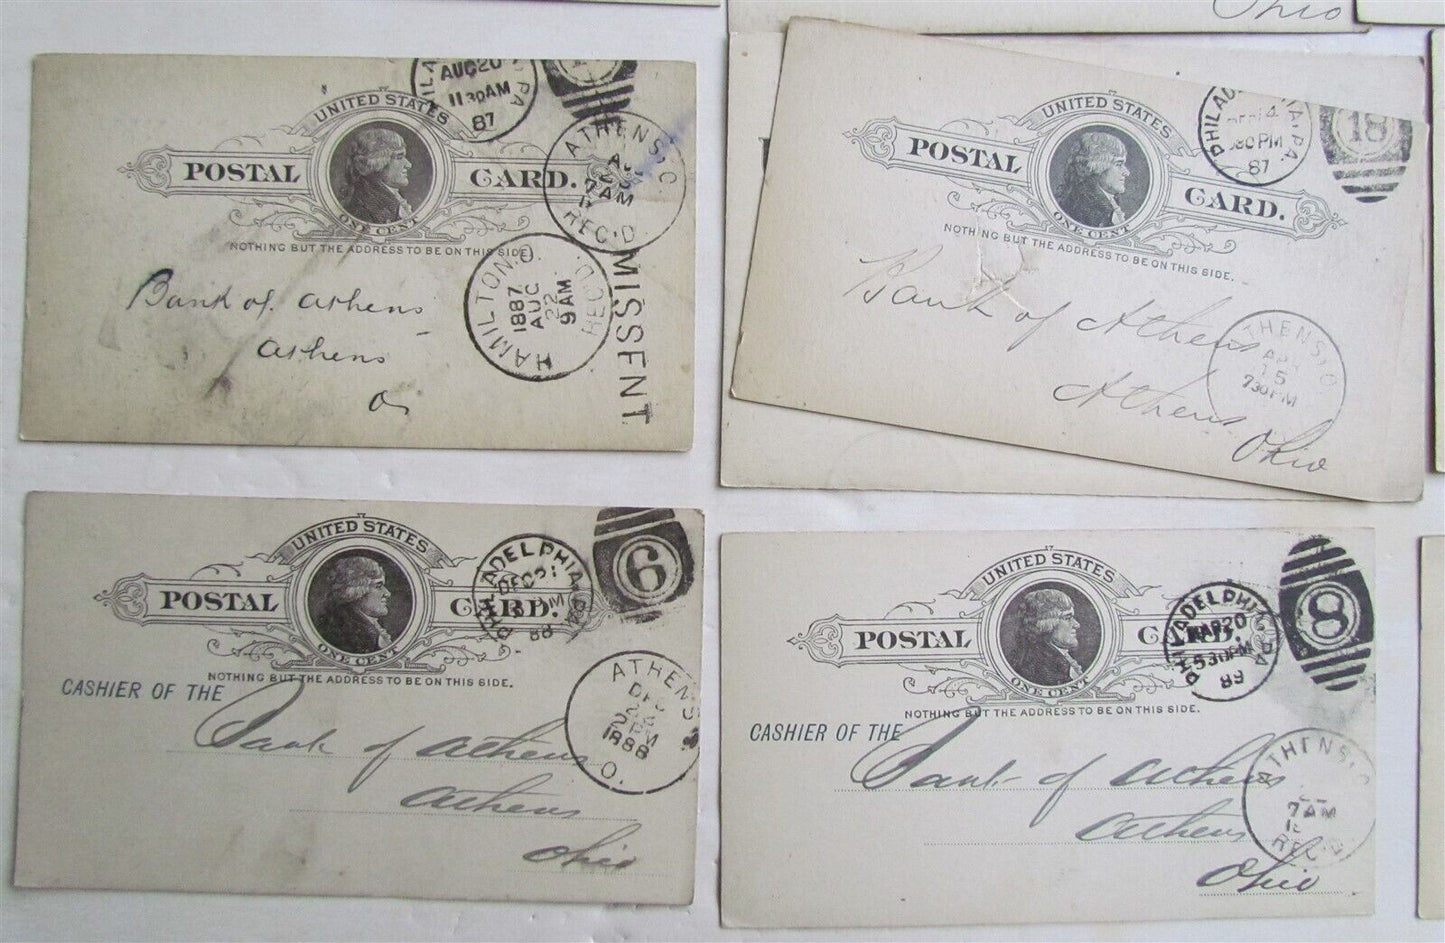 Ohio
PHILA
AUG 20
11 30 AM
87
PA
UNITED STATES
POSTAL CARD.
ONE CENT
NOTHING BUT THE ADDRESS TO BE ON THIS SIDE.
ATHENS, O.
7 AM
REC'D
HAMILTON O.
1887
AUG
22
9 AM
REC'D
MISSENT
Bank of Athens
Athens
O
UNITED STATES
POSTAL CARD.
ONE CENT
NOTHING BUT THE ADDRESS TO BE ON THIS SIDE.
PA.
PM
87
18
Bank of Athens
Athens
Ohio
ATHENS, O
15
730 PM
UNITED STATES
POSTAL CARD.
ONE CENT
NOTHING BUT THE ADDRESS TO BE ON THIS SIDE.
PHILADELPHIA PA
DEC
88
6
ATHENS
O.
PM
1888
CASHIER OF THE
Bank of Athens
Athens
Ohio
UNITED STATES
POSTAL CARD.
ONE CENT
NOTHING BUT THE ADDRESS TO BE ON THIS SIDE.
PHILADELPHIA PA
MAR 20
530 PM
89
8
ATHENS, O
7 AM
REC'D
CASHIER OF THE
Bank of Athens
Athens
Ohio